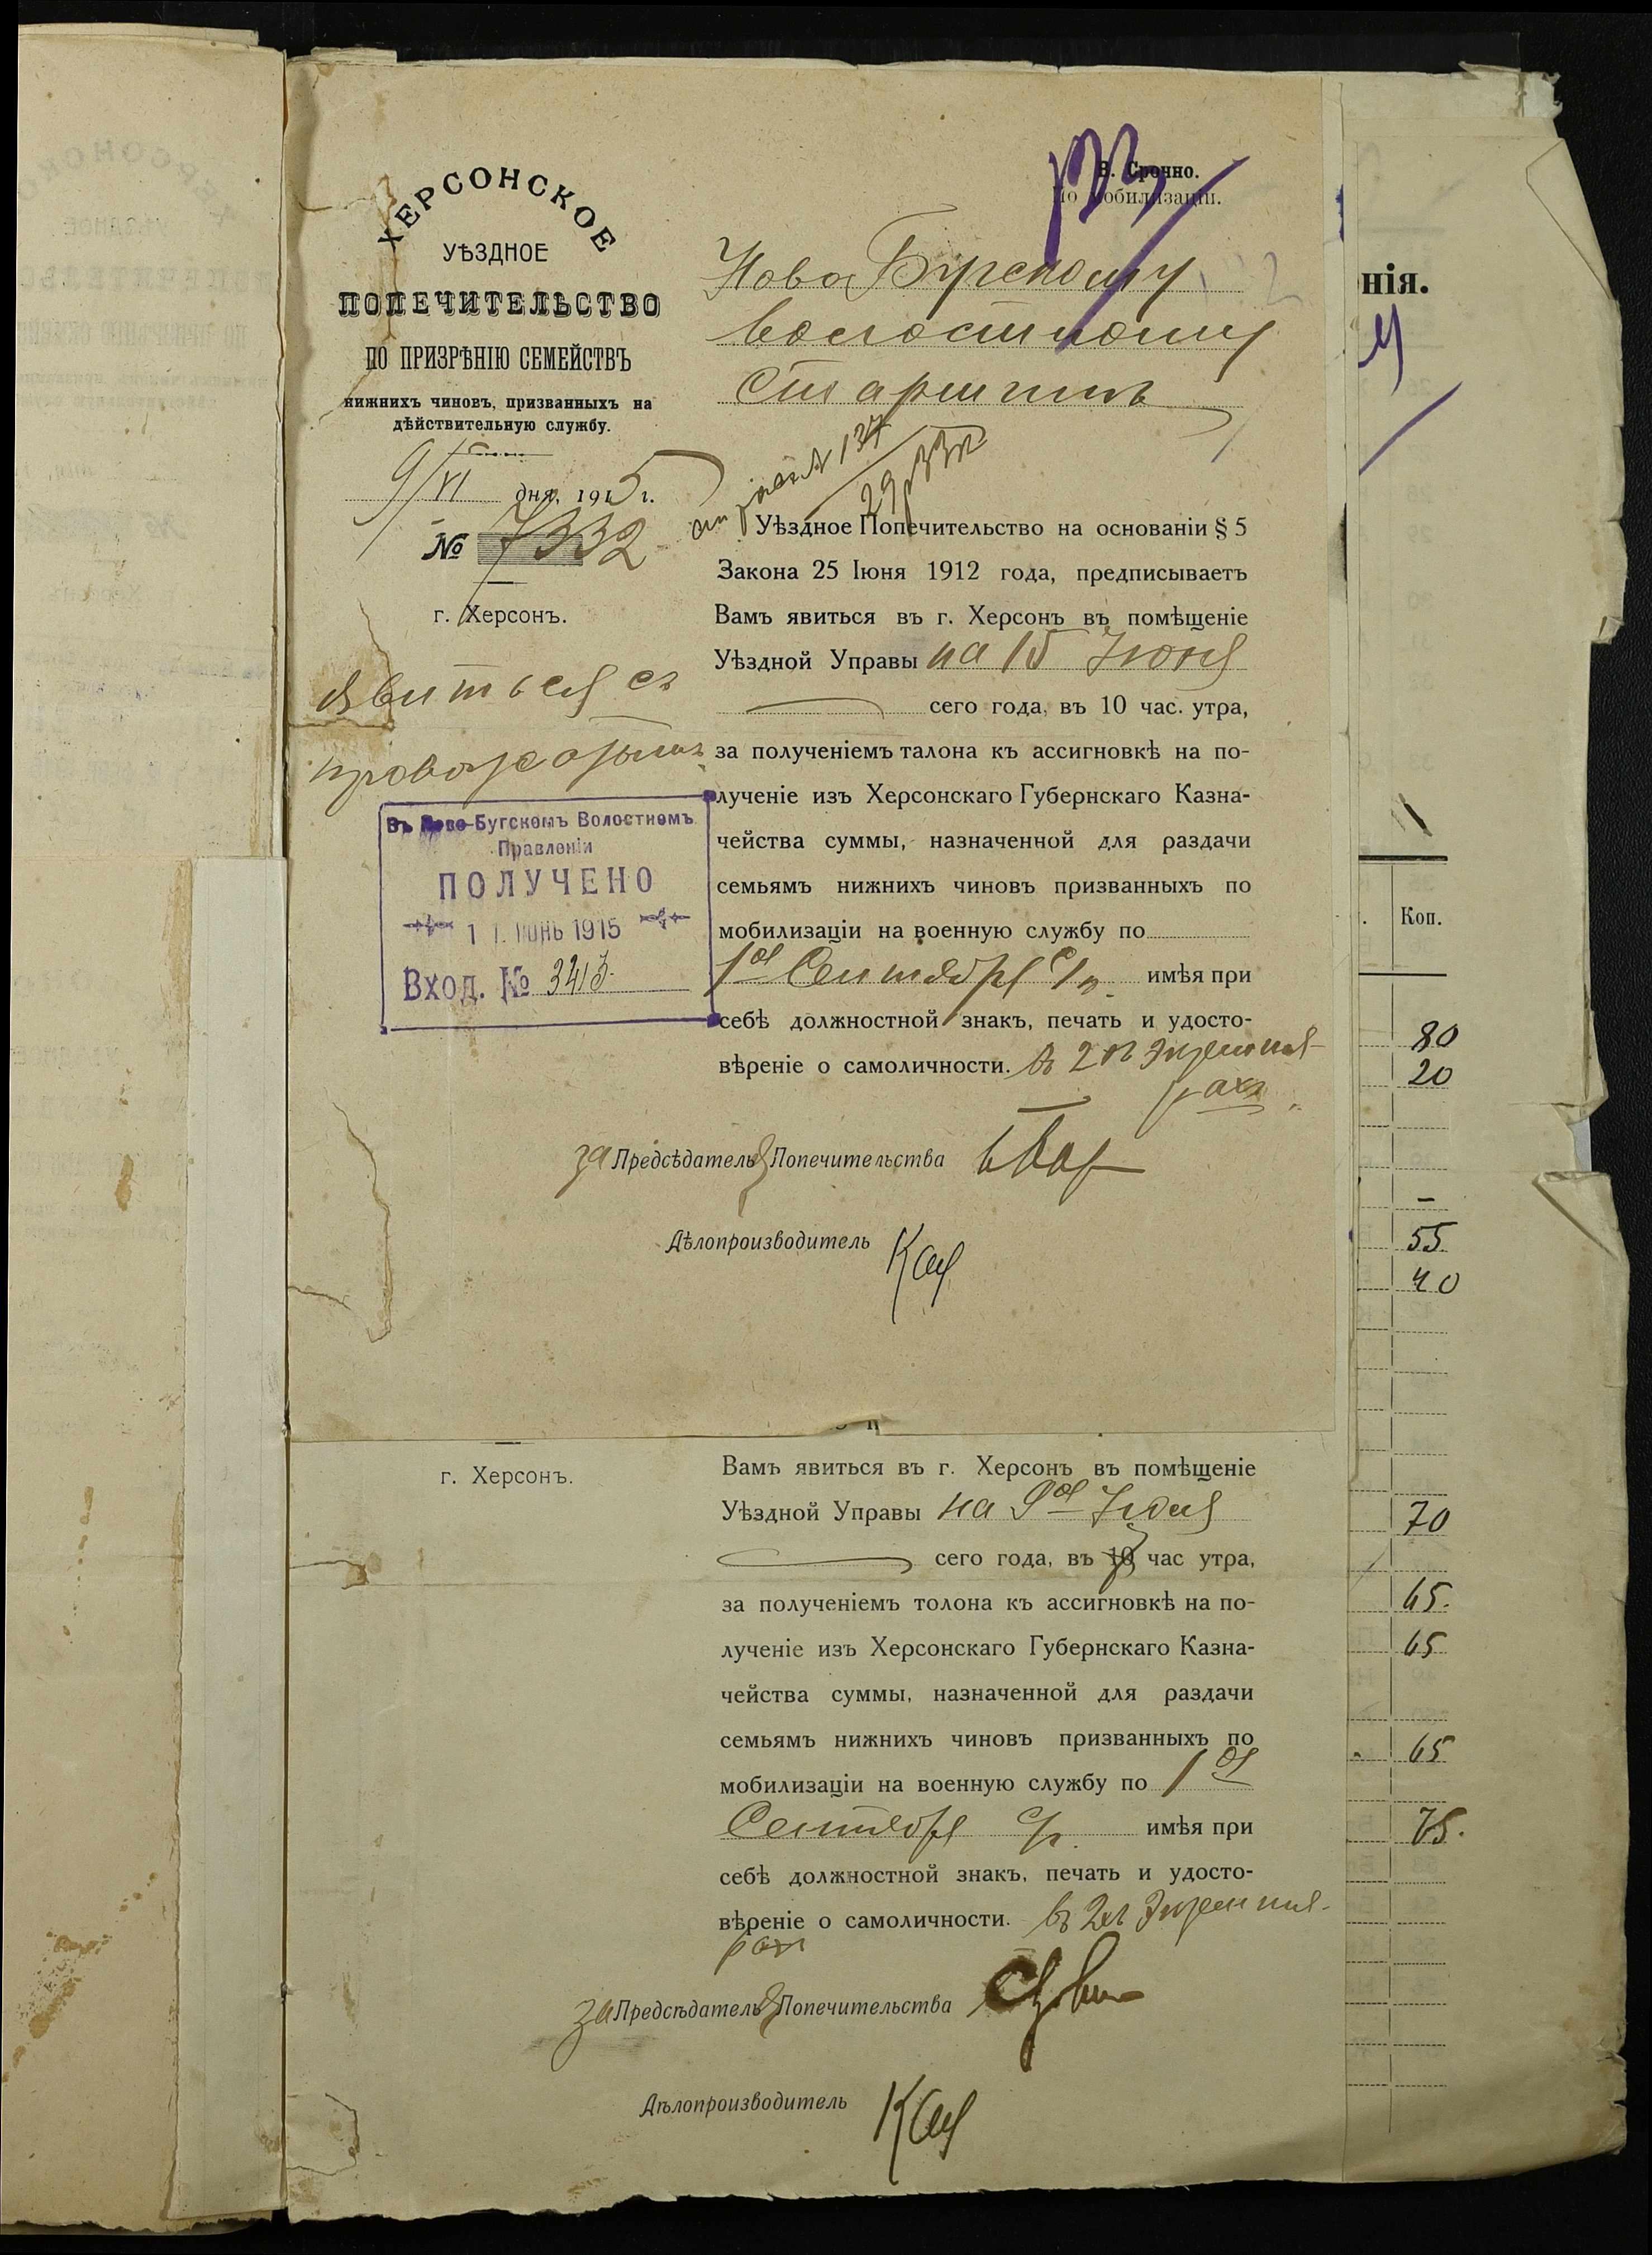 ХЕРСОНСКОЕ
УѢЗДНОЕ
ПОПЕЧИТЕЛЬСТВО
ПО ПРИЗРѢНІЮ СЕМЕЙСТВЪ
нижнихъ чиновъ, призванныхъ на
дѣйствительную службу.
9/VI дня, 1915 г.
№ 7332
г. Херсонъ.
явиться съ
В. Срочно.
По мобилизаціи.
Ново Бугскому
волостному
Старшинѣ
Уѣздное Попечительство на основаніи § 5
Закона 25 Іюня 1912 года, предписываетъ
Вамъ явиться въ г. Херсонъ въ помѣщеніе
Уѣздной Управы на 15 Іюня
сего года, въ 10 час. утра,
за полученіемъ талона къ ассигновкѣ на по-
лученіе изъ Херсонскаго Губернскаго Казна-
чейства суммы, назначенной для раздачи
семьямъ нижнихъ чиновъ призванныхъ по
мобилизаціи на военную службу по
1ое Сентября с/г. имѣя при
себѣ должностной знакъ, печать и удосто-
вѣреніе о самоличности. въ 2хъ экземпля-
рахъ.
за Предсѣдателя Попечительства
Дѣлопроизводитель
Въ Ново-Бугскомъ Волостномъ
Правленіи
ПОЛУЧЕНО
1 1. ІЮНЬ 1915
Вход. № 3413
г. Херсонъ.
Вамъ явиться въ г. Херсонъ въ помѣщеніе
Уѣздной Управы на 9ое Іюня
сего года, въ 10 час утра,
за полученіемъ толона къ ассигновкѣ на по-
лученіе изъ Херсонскаго Губернскаго Казна-
чейства суммы, назначенной для раздачи
семьямъ нижнихъ чиновъ призванныхъ по
мобилизаціи на военную службу по 1ое
Сентября с/г. имѣя при
себѣ должностной знакъ, печать и удосто-
вѣреніе о самоличности. въ 2хъ экземпля-
рахъ
за Предсѣдателя Попечительства
Дѣлопроизводитель
нія.
Коп.
80
20
–
55
40
70
65.
65
65
75.